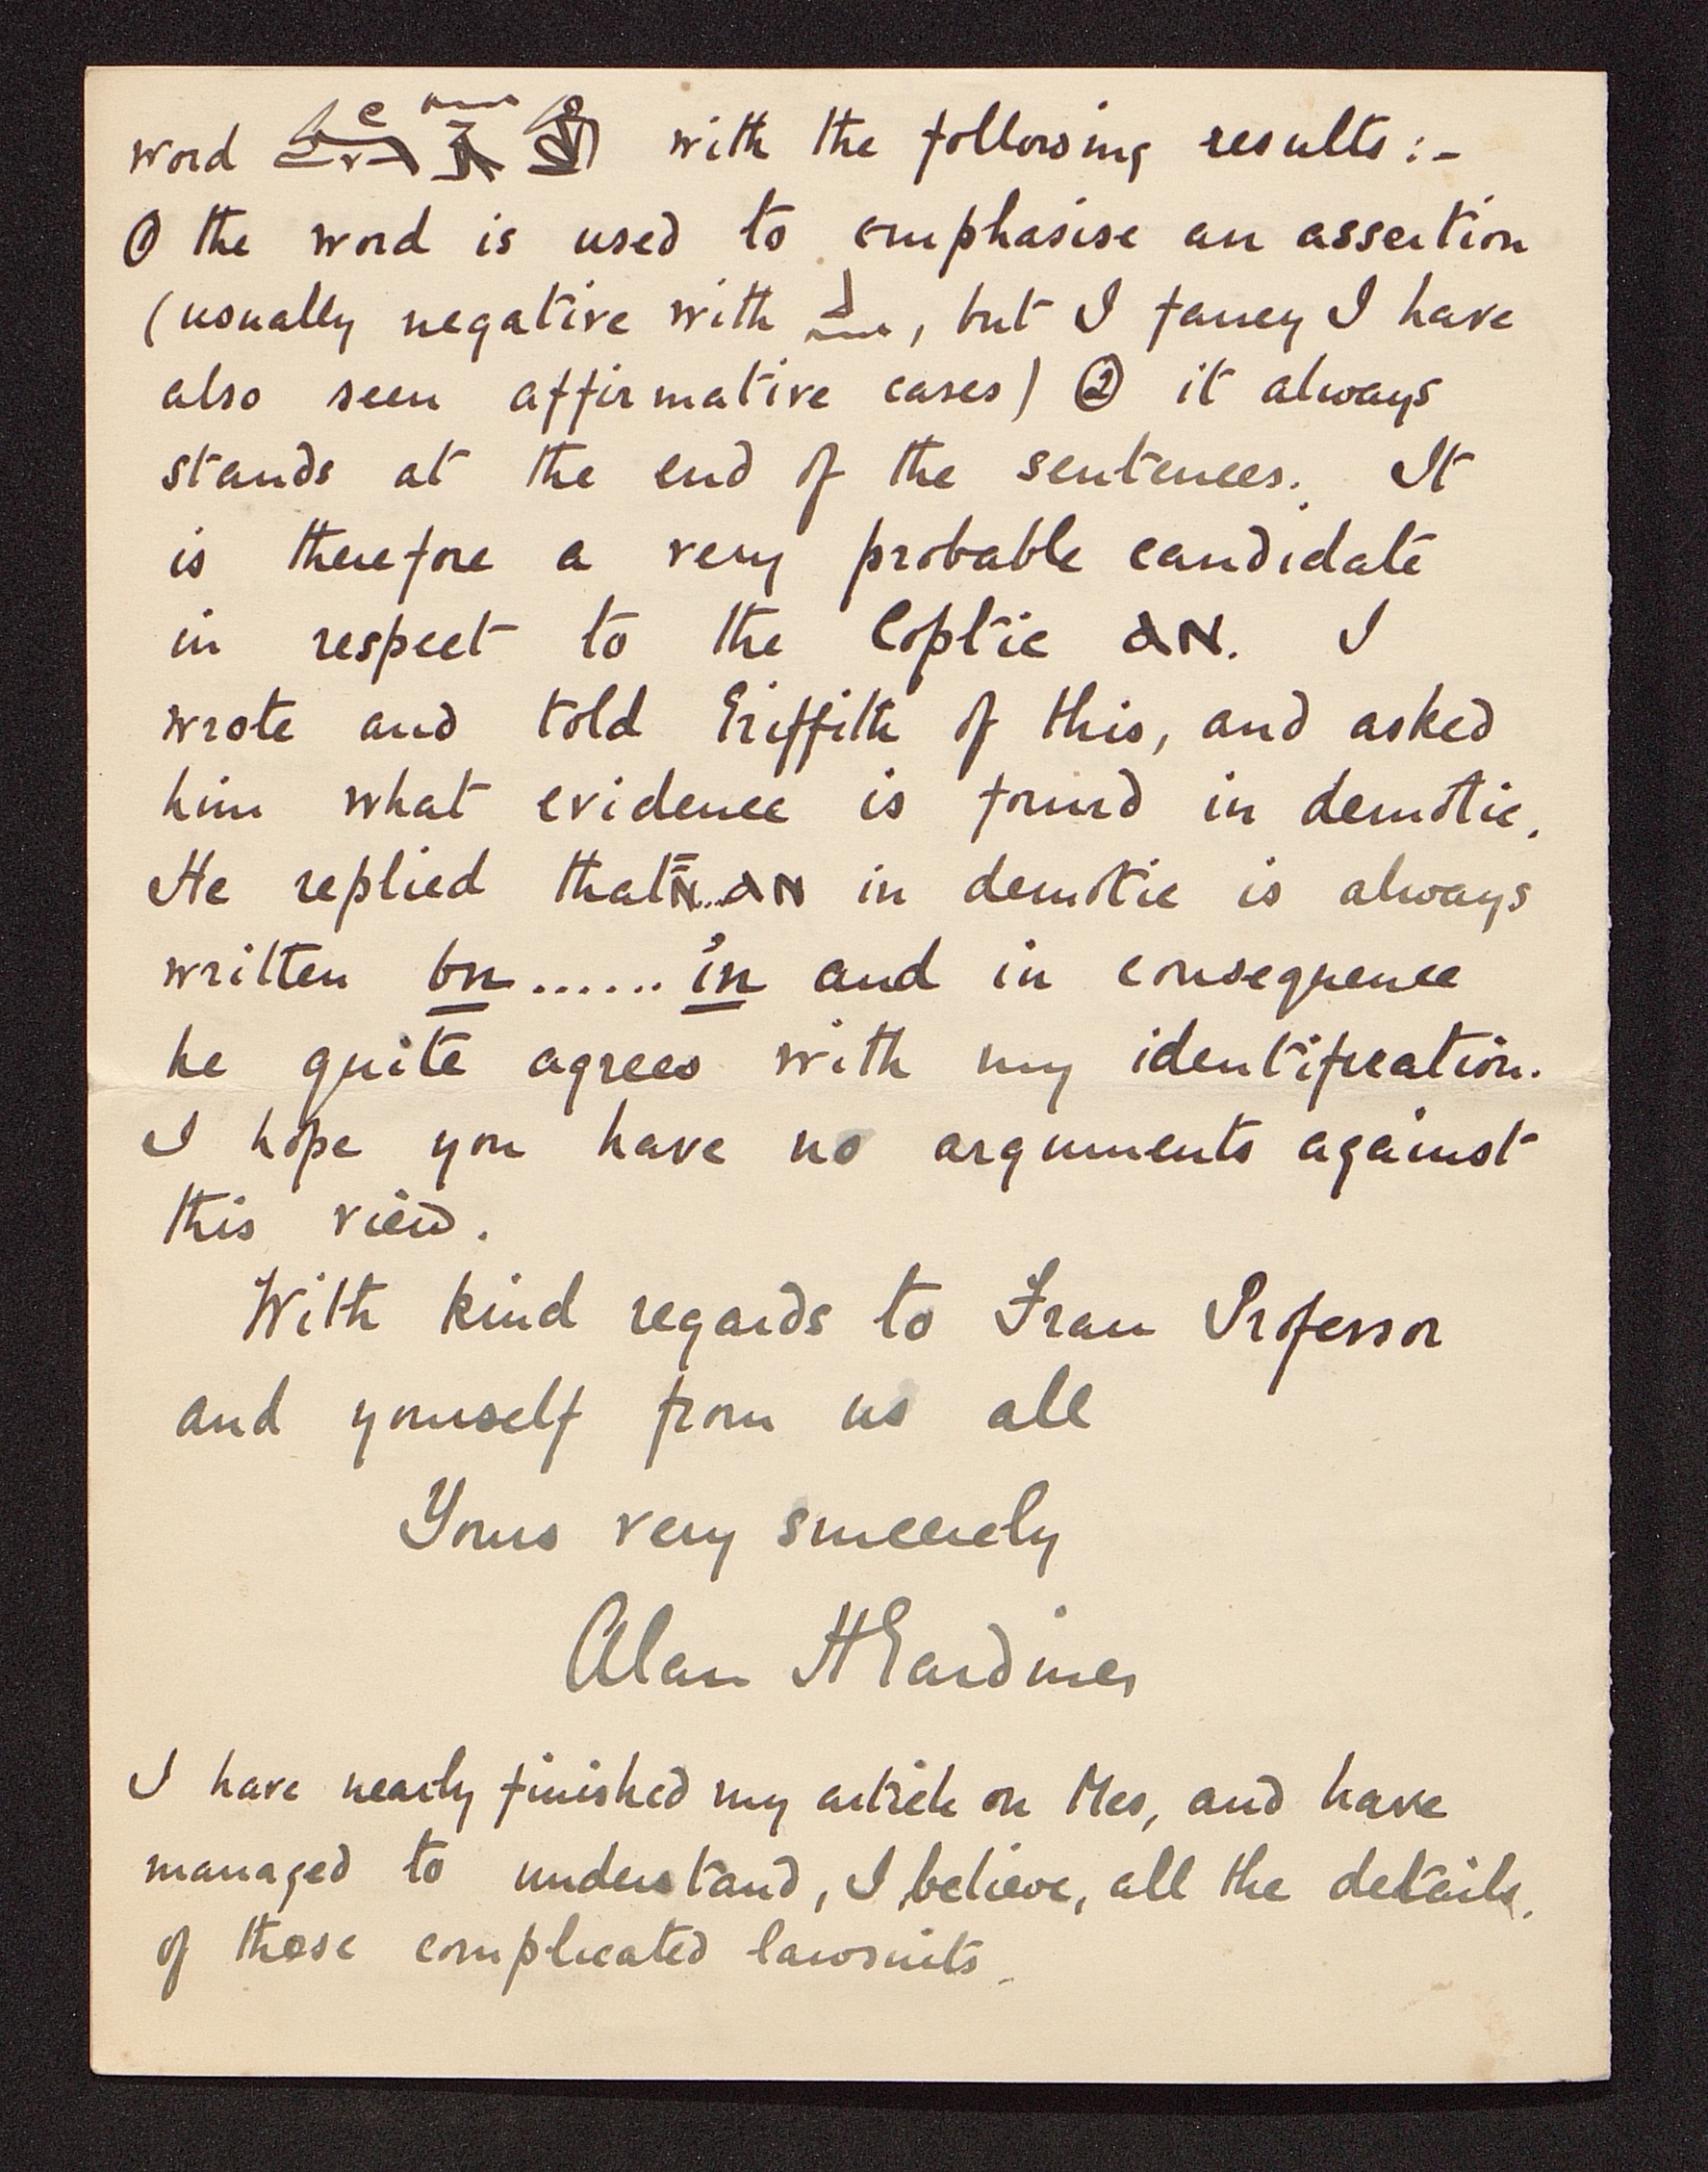 word with the following results:-
① the word is used to emphasise an assertion
(usually negative with , but I fancy I have
also seen affirmative cases) ② it always
stands at the end of the sentences. It
is therefore a very probable candidate
in respect to the Coptic ⲁⲛ. I
wrote and told Griffith of this, and asked
him what evidence is found in demotic.
He replied that ⲛ̄...ⲁⲛ in demotic is always
written bn...... in and in consequence
he quite agrees with my identification.
I hope you have no arguments against
this view.
With kind regards to Frau Professor
and yourself from us all
Yours very sincerely
Alan H Gardiner
I have nearly finished my article on Mes, and have
managed to understand, I believe, all the details
of those complicated lawsuits.